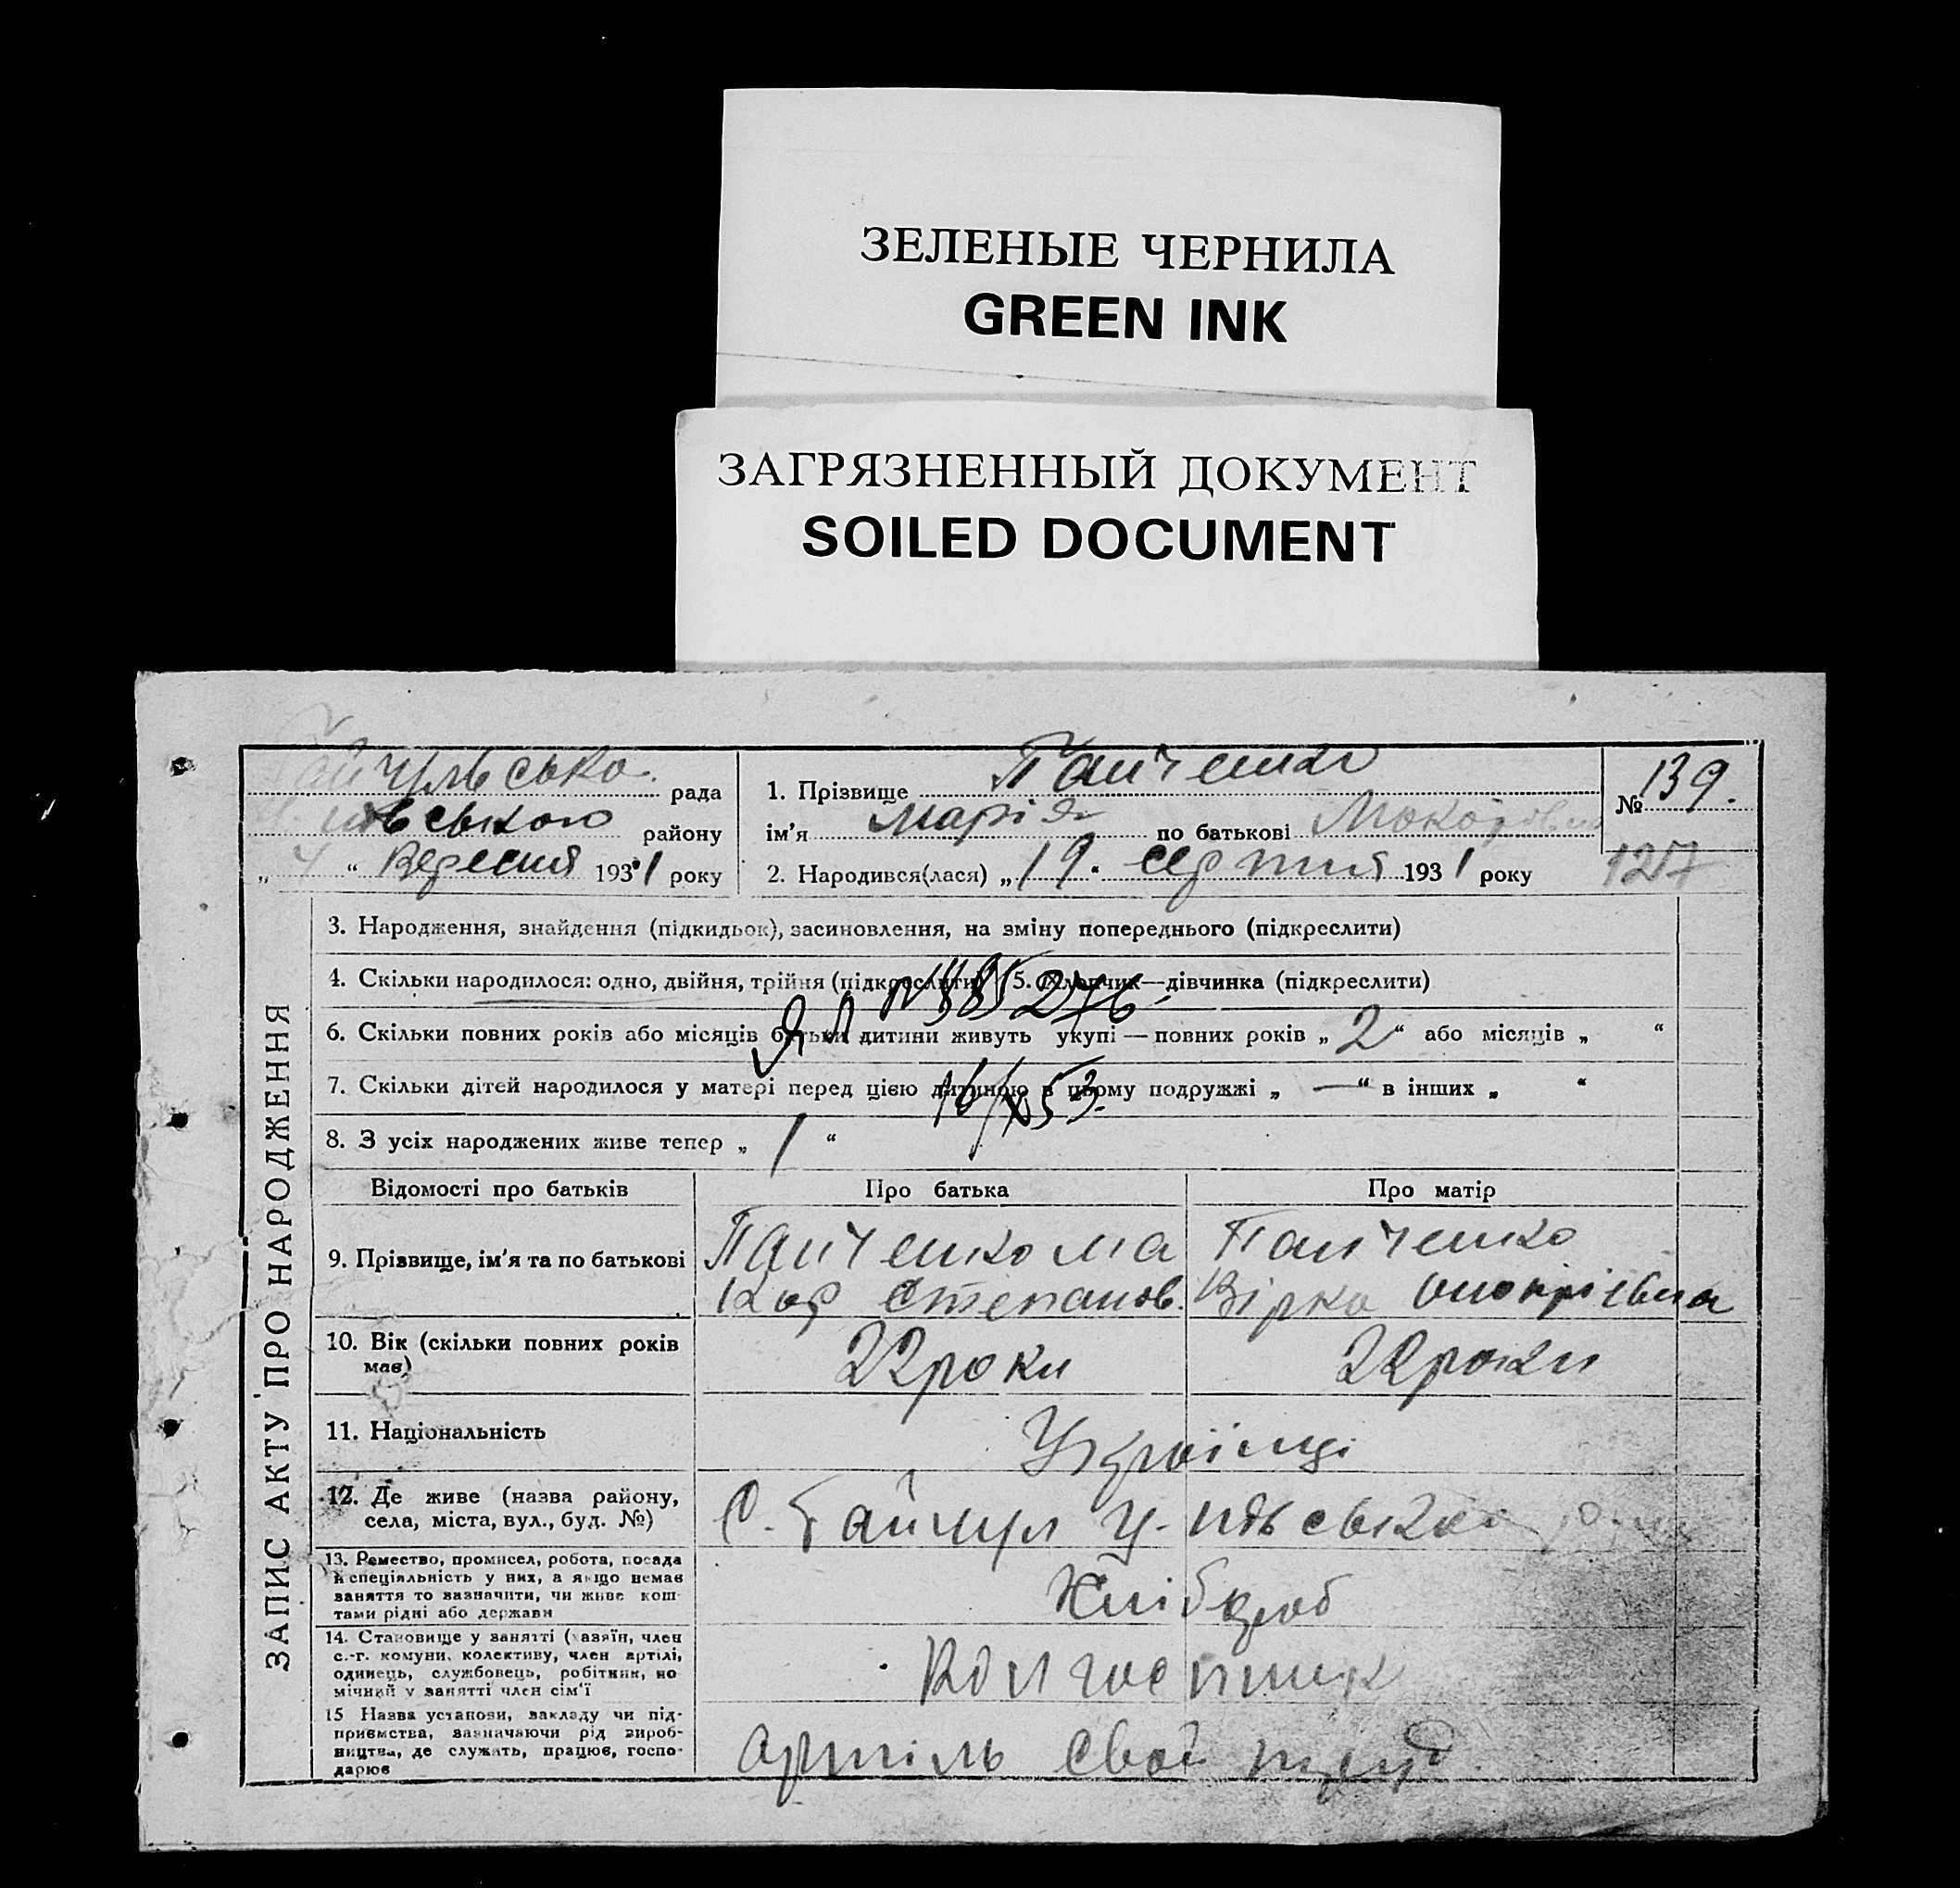 ЗЕЛЕНЫЕ ЧЕРНИЛА
GREEN INK
ЗАГРЯЗНЕННЫЙ ДОКУМЕНТ
SOILED DOCUMENT
ЗАПИС АКТУ ПРО НАРОДЖЕННЯ
Гайчульсько рада
району
„ 4 “ Вересня 1931 року
1. Прізвище Панченко
ім'я Марія по батькові
2. Народився(лася) „ 19 “ серпня 1931 року
№ 139.
127
3. Народження, знайдення (підкидьок), засиновлення, на зміну попереднього (підкреслити)
4. Скільки народилося: одно, двійня, трійня (підкреслити) 5. Хлопчик—дівчинка (підкреслити)
6. Скільки повних років або місяців батьки дитини живуть укупі — повних років „ 2 “ або місяців „ “
7. Скільки дітей народилося у матері перед цією дитиною в цьому подружжі „ — “ в інших „ “
8. З усіх народжених живе тепер „ 1 “
Відомості про батьків Про батька Про матір
9. Прізвище, ім'я та по батькові
Панченко Ма
кар Степанов.
Панченко
Вірка
10. Вік (скільки повних років
має)
22 роки
22 роки
11. Національність
Українці
12. Де живе (назва району,
села, міста, вул., буд. №)
С. Гайчул
13. Ремество, промисел, робота, посада
й спеціяльність у них, а якщо немає
заняття то зазначити, чи живе кош-
тами рідні або держави
Хлібороб
14. Становище у занятті (хазяїн, член
с.-г. комуни, колективу, член артілі,
одинець, службовець, робітник, по
мічний у занятті член сім'ї
Колгоспник
15 Назва установи, закладу чи під-
приємства, зазначаючи рід вироб-
ництва, де служать, працює, госпо-
дарює
Артіль свой труд